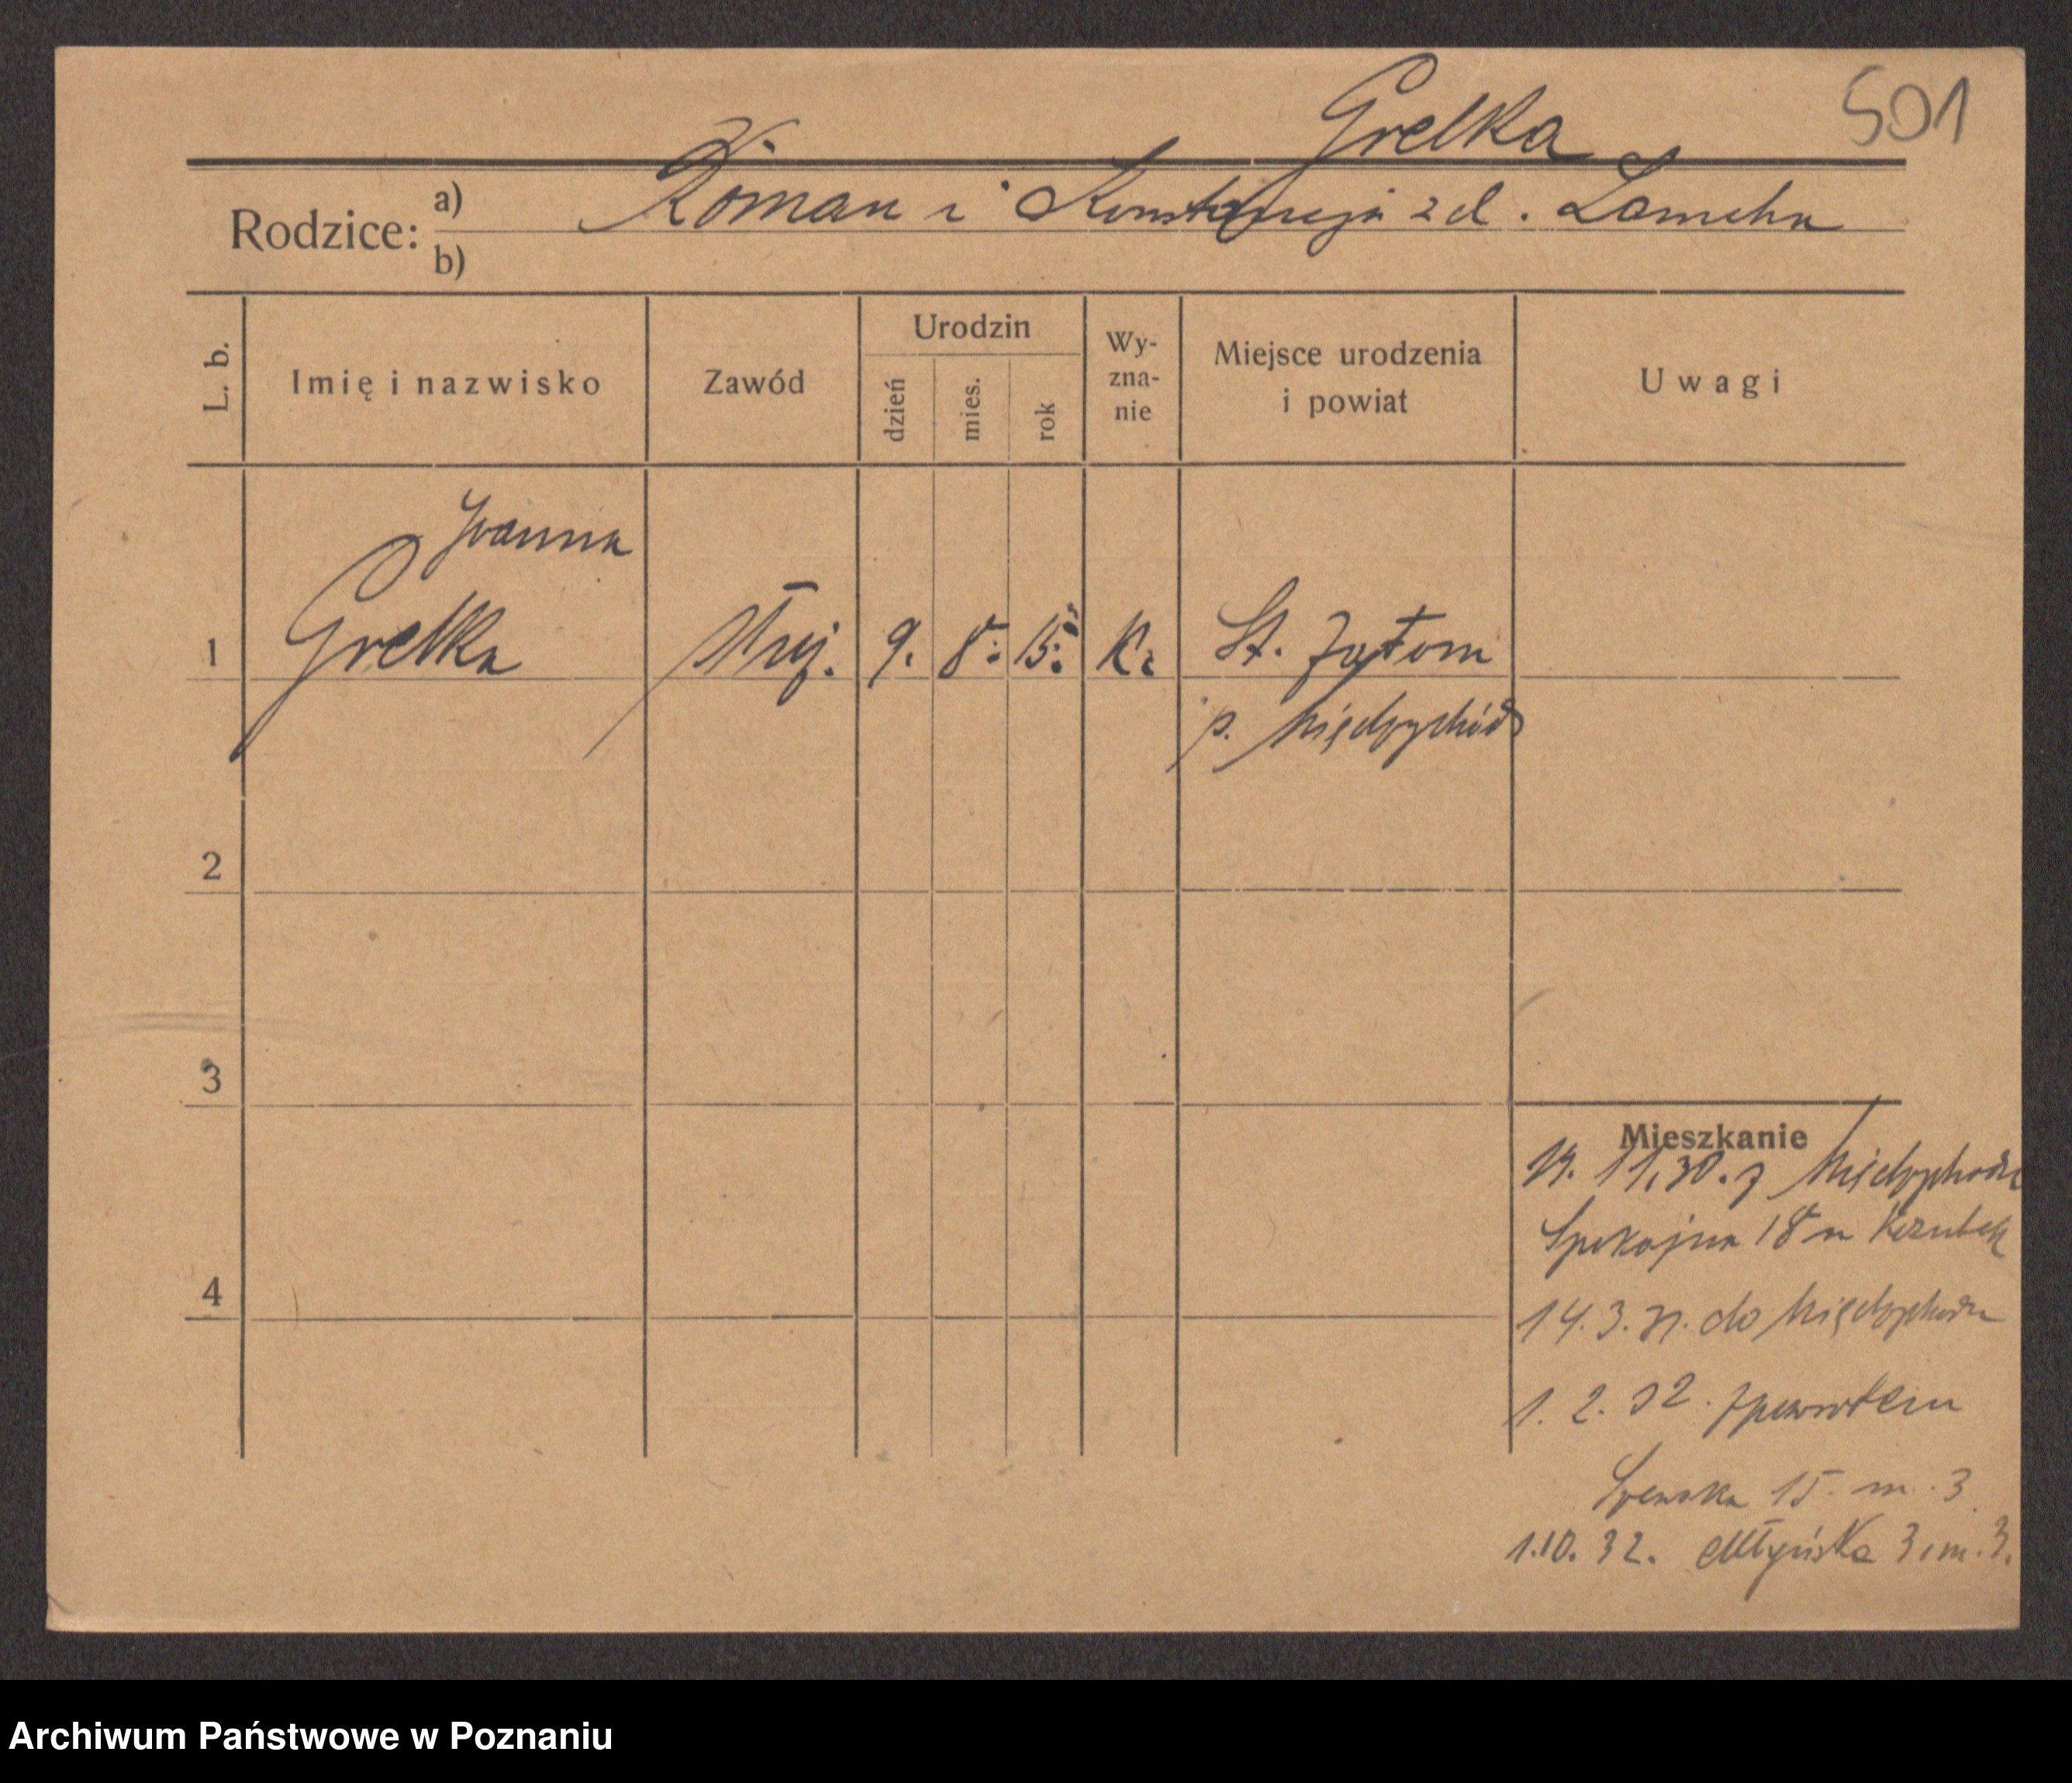 501
Grelka
Rodzice: a) Roman i Konstancja z d. Lamcha
b)
L. b. Imię i nazwisko Zawód Urodzin dzień mies. rok Wy-zna-nie Miejsce urodzenia i powiat Uwagi
Joanna
1 Grelka służ. 9. 8. 15. K. St. Zatom
p. Międzychód
2
3
Mieszkanie
11.30. z Międzychodu
Spokojna 18 m
4
14.3.31. do Międzychodu
1.2.32. zpowrotem
15 m. 3
1.10.32. Młyńska 3 m. 3.
Archiwum Państwowe w Poznaniu